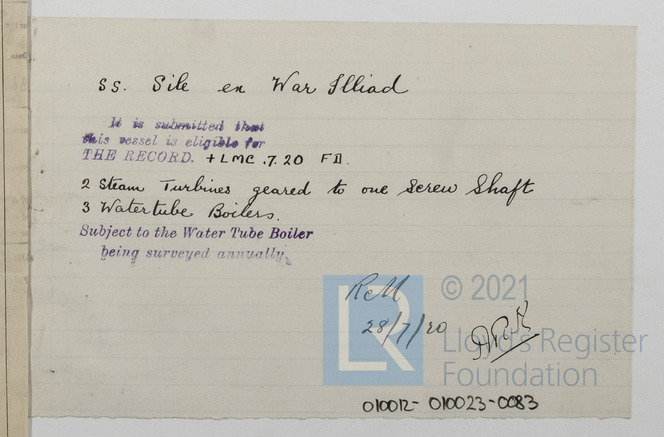 SS. Sile ex War Illiad
It is submitted that
this vessel is eligible for
THE RECORD. + LMC .7.20 FD.
2 Steam Turbines geared to one Screw Shaft
3 Watertube Boilers.
Subject to the Water Tube Boiler
being surveyed annually.
28/7/20
© 2021
LR
Lloyd's Register
Foundation
010012-010023-0083